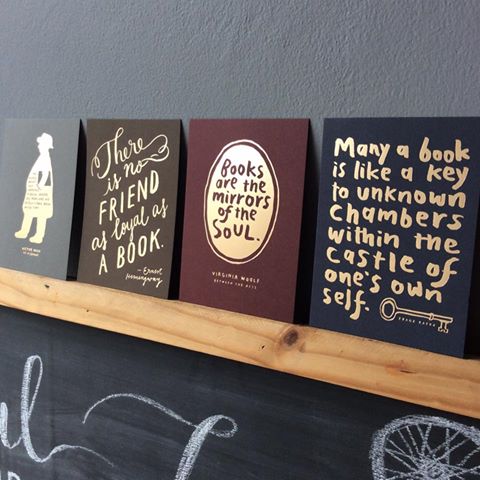 There
is no
FRIEND
as loyal as
A BOOK.
– Ernest
Hemingway
Books
are the
mirrors
of the
SOUL.
VIRGINIA WOOLF
BETWEEN THE ACTS
Many a book
is like a key
to unknown
chambers
within the
castle of
one's own
self.
FRANZ KAFKA